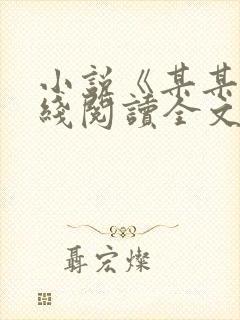 小說《某某
綫閱讀全文
聶宏燦